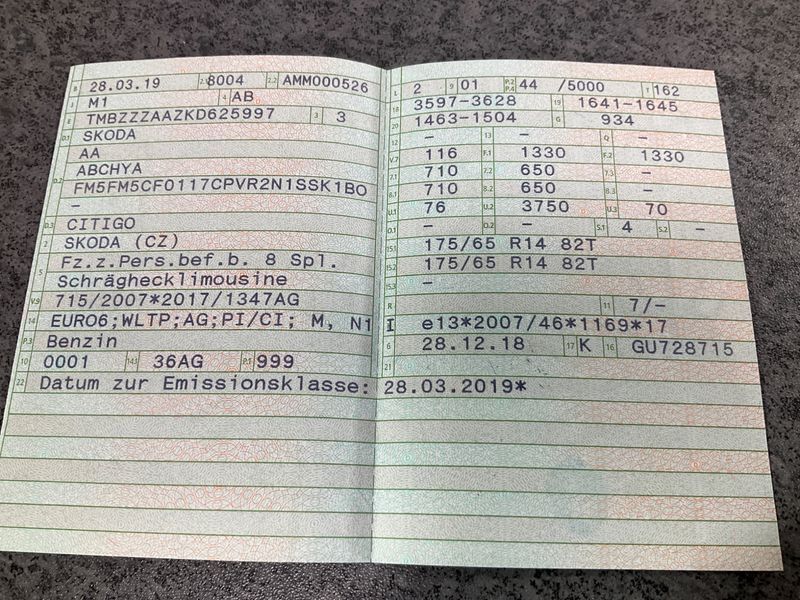 B 28.03.19 2.1 8004 2.2 AMM000526
J M1 4 AB
E TMBZZZAAZKD625997 3 3
D.1 SKODA
AA
D.2 ABCHYA
FM5FM5CF0117CPVR2N1SSK1BO
–
D.3 CITIGO
2 SKODA (CZ)
5 Fz.z.Pers.bef.b. 8 Spl.
Schräghecklimousine
V.9 715/2007*2017/1347AG
14 EURO6;WLTP;AG;PI/CI; M, N1 I
P.3 Benzin
10 0001 14.1 36AG P.1 999
22 Datum zur Emissionsklasse: 28.03.2019*
L 2 9 01 P.2 P.4 44 /5000 T 162
18 3597-3628 19 1641-1645
20 1463-1504 G 934
12 – 13 – Q –
V.7 116 F.1 1330 F.2 1330
7.1 710 7.2 650 7.3 –
8.1 710 8.2 650 8.3 –
U.1 76 U.2 3750 U.3 70
O.1 – O.2 – S.1 4 S.2 –
15.1 175/65 R14 82T
15.2 175/65 R14 82T
15.3 –
R 11 7/–
K e13*2007/46*1169*17
6 28.12.18 17 K 16 GU728715
21